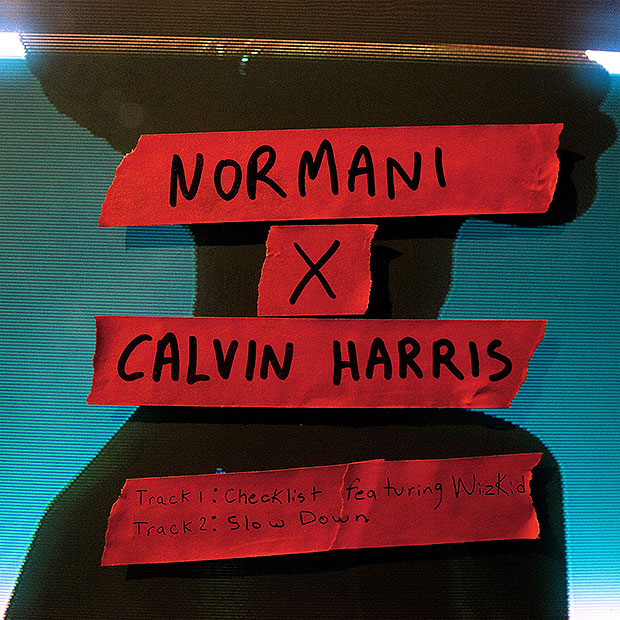 NORMANI
X
CALVIN HARRIS
Track 1: Checklist featuring WizKid
Track 2: Slow Down